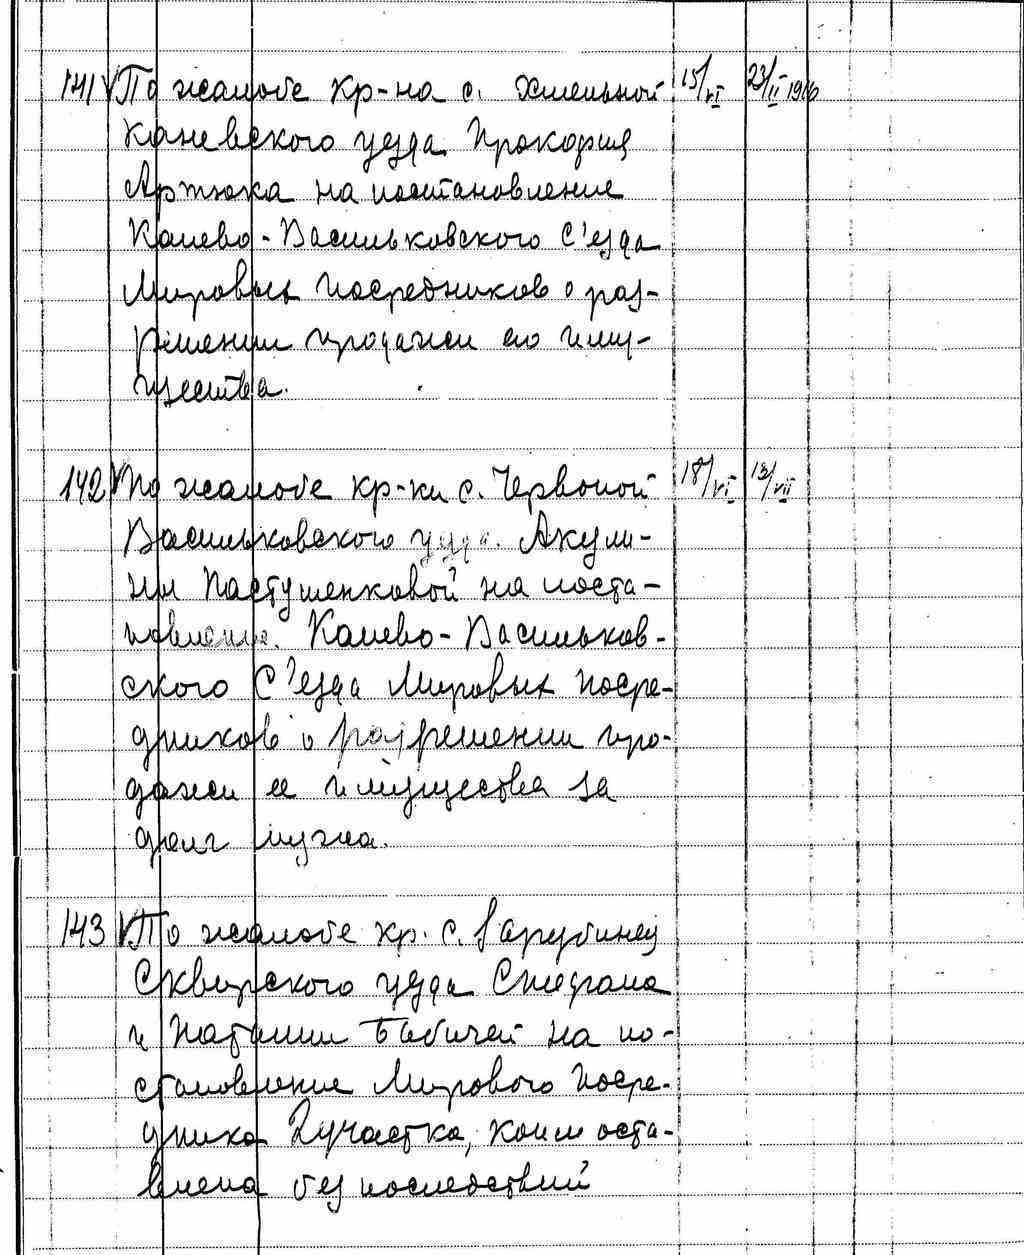 141 По жалобе кр-на с. Хмельной 15/VI 23/II 1916
Каневского уезда Прокофия
Артюха на постановление
Канево-Васильковского С'езда
Мировых Посредников о раз-
решении продажи его иму-
щества.
142 По жалобе кр-ки с. Червоной 18/VI 13/VII
Васильковского уезда Акули-
ны Пастушенковой на поста-
новление Канево-Васильков-
ского С'езда Мировых Посре-
дников о разрешении про-
дажи ее имущества за
долг мужа.
143 По жалобе кр. с. Зарубинец
Сквирского уезда Степана
и Наталии Бабичей на по-
становление Мирового Посре-
дника 2 участка, коим оста-
влена без последствий